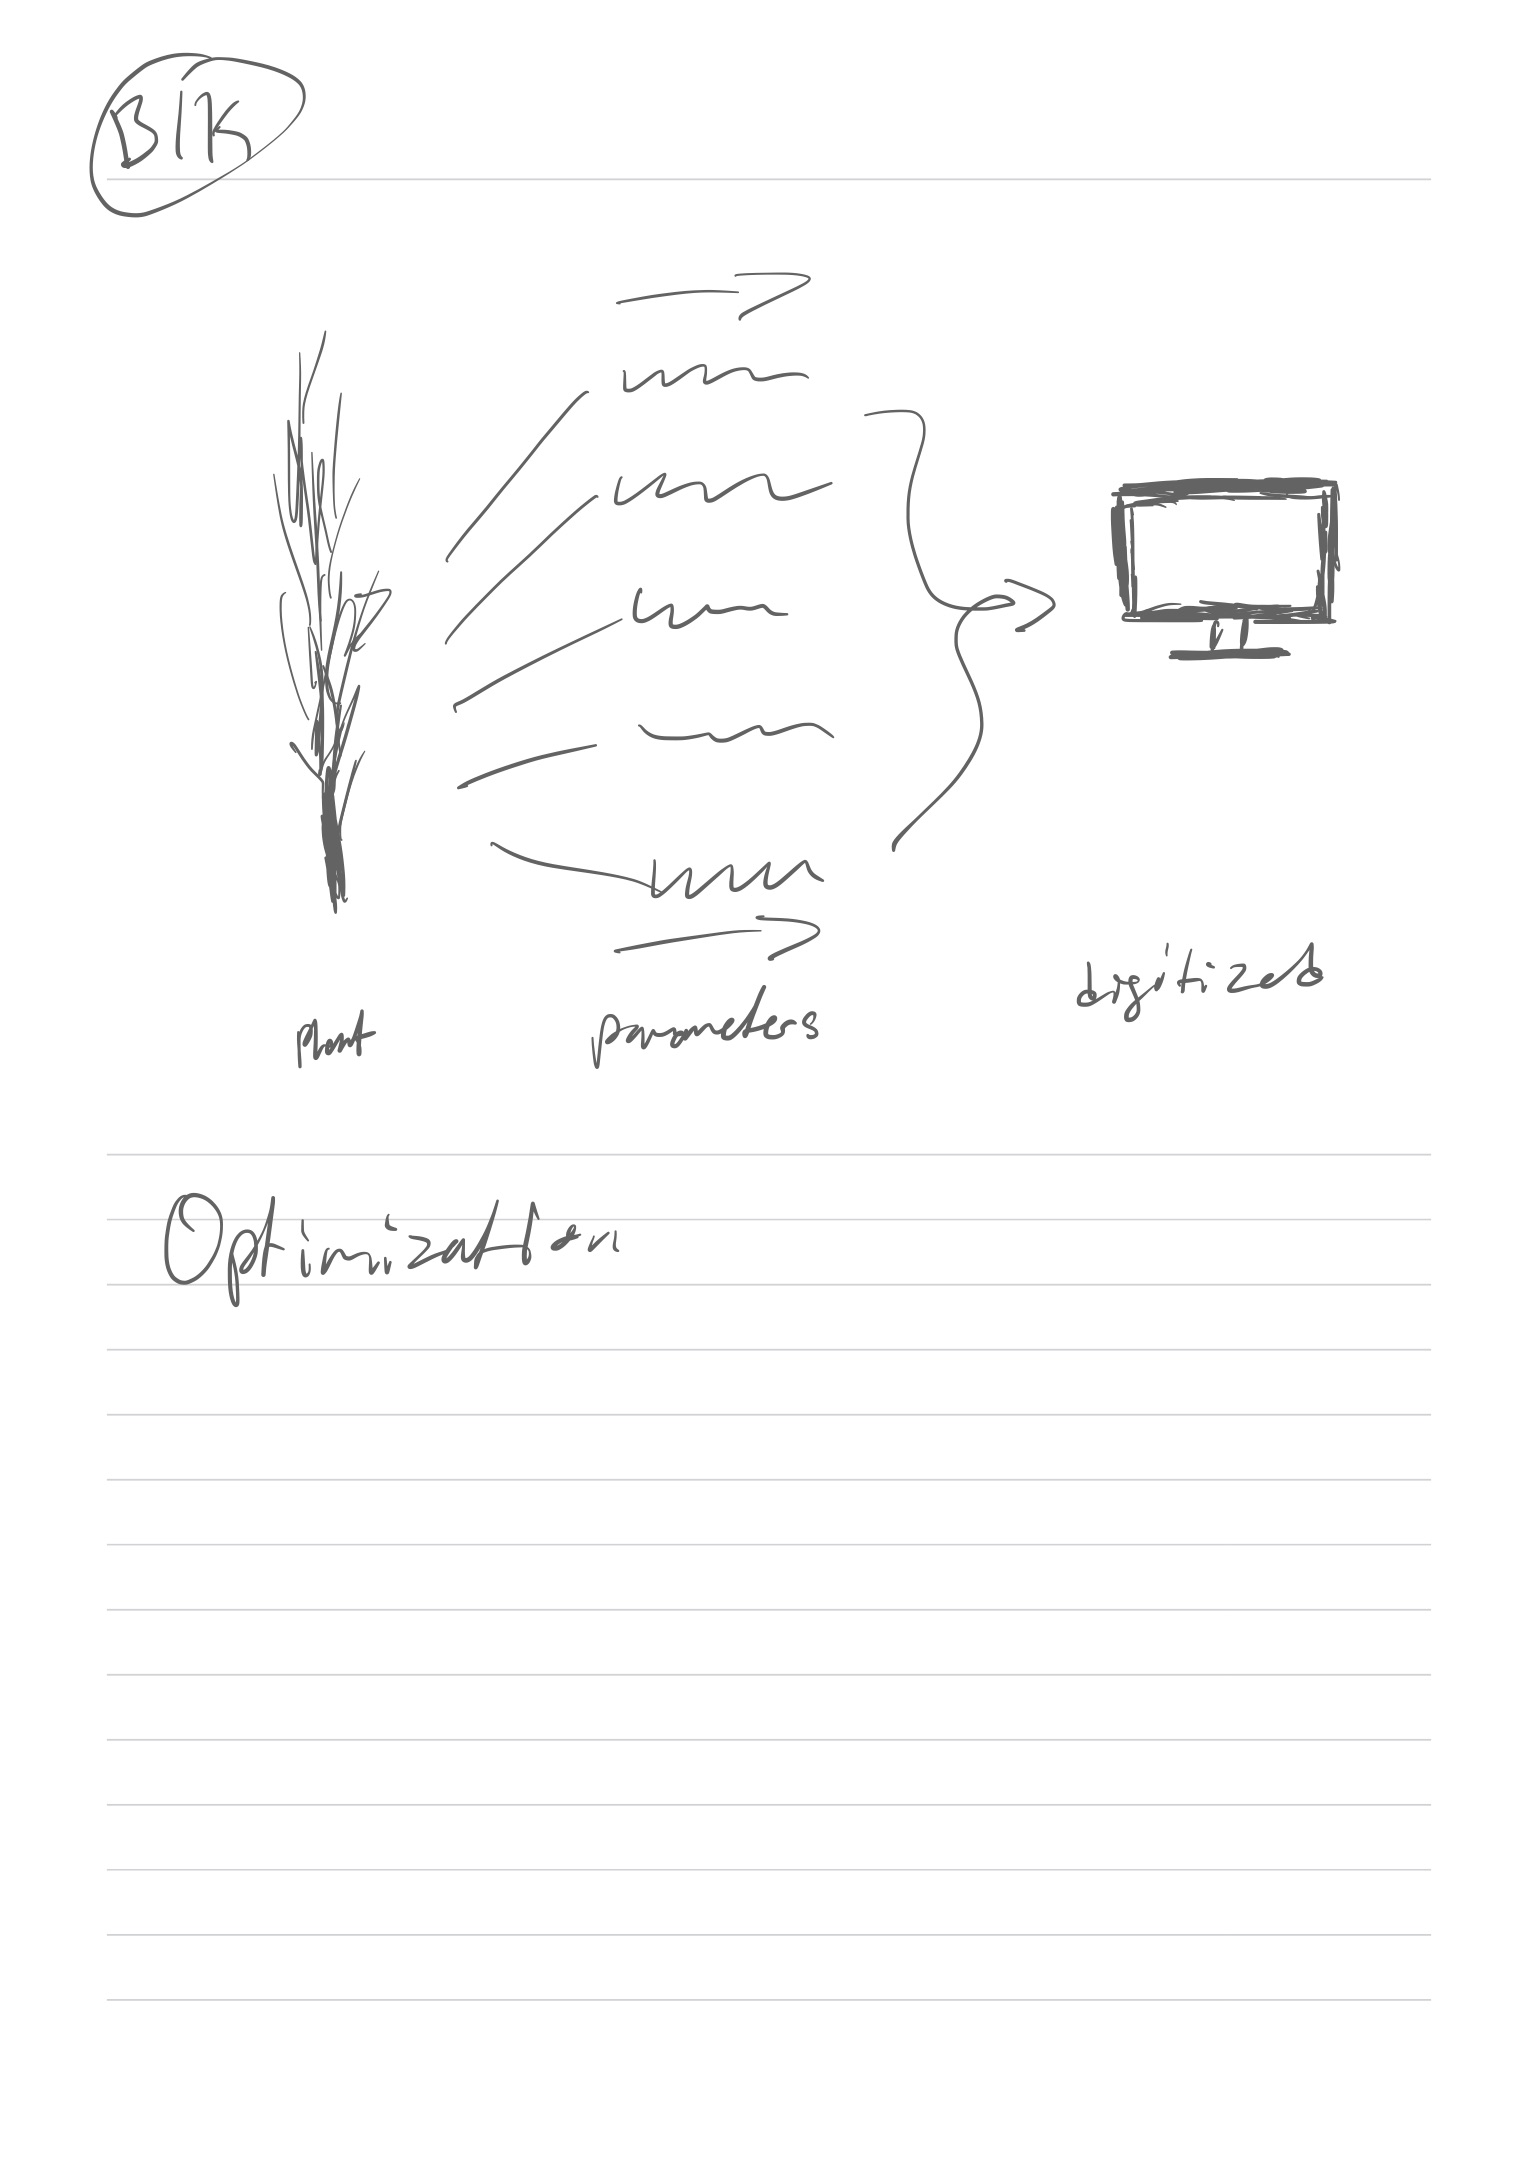 BIK
plant
parameters
digitized
Optimization